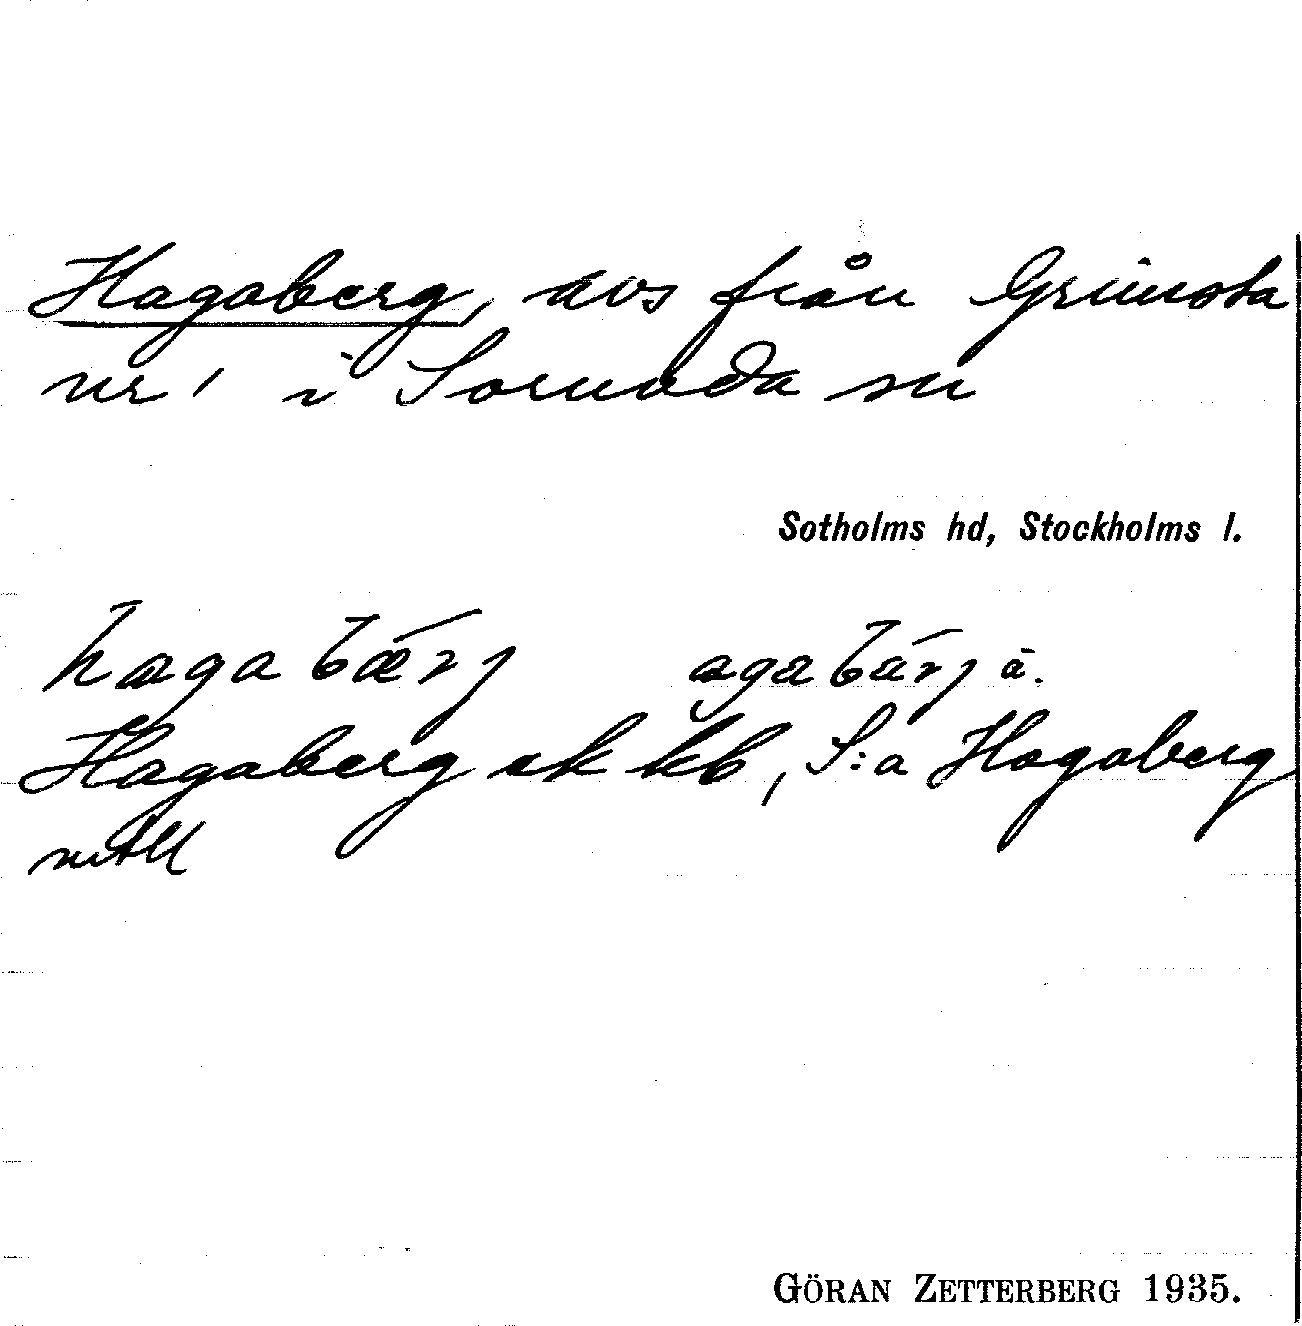 Hagaberg, avs från Grimsta
nr 1 i Sorunda sn
Sotholms hd, Stockholms l.
hagabærj agabärj ä.
Hagaberg ek kb, S:a Hagaberg
mtll
GÖRAN ZETTERBERG 1935.